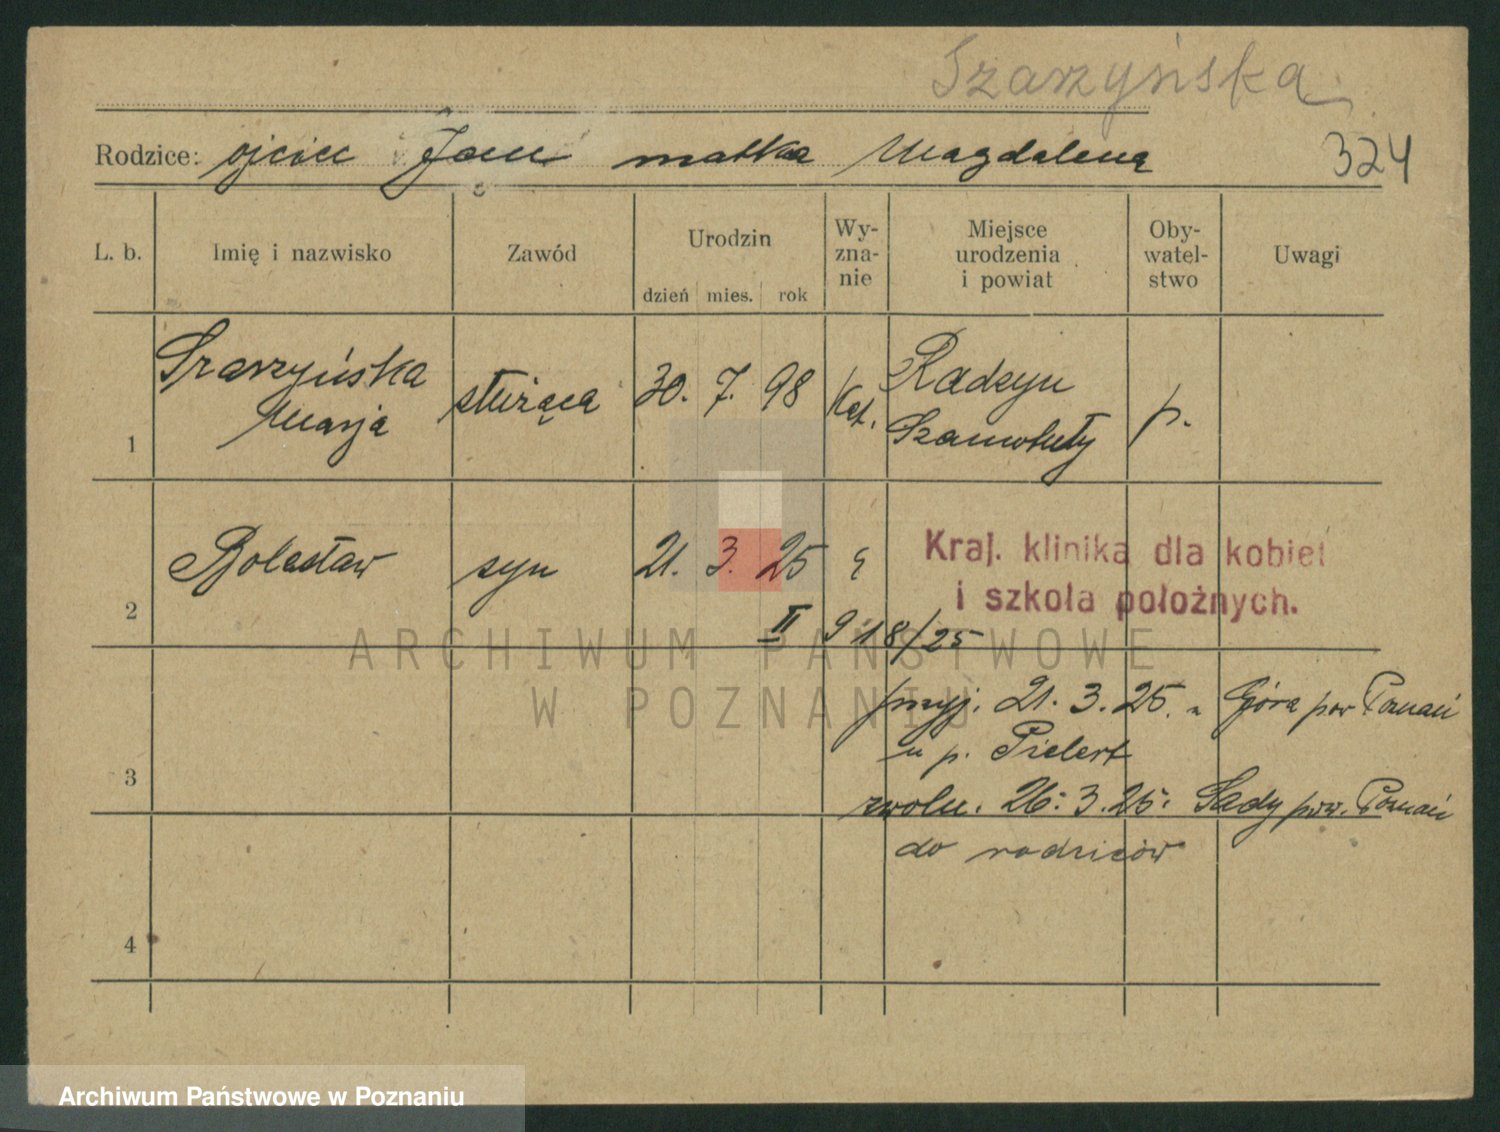 Szarzyńska
Rodzice: ojciec Jan matka Magdalena 324
L. b. Imię i nazwisko Zawód Urodzin dzień mies. rok Wy-zna-nie Miejsce urodzenia i powiat Oby-watel-stwo Uwagi
1 Szarzyńska Marja służąca 30. 7. 98 kat. Radzyn Szamotuły p.
2 Bolesław syn 21. 3. 25
Kraj. klinika dla kobiet
i szkoła położnych.
II 918/25
przyj. 21.3.25. Góra pow Poznań
u p. Pielert
3
zwoln. 26.3.25. Sady pow. Poznań
do rodziców
4
ARCHIWUM PAŃSTWOWE
W POZNANIU
Archiwum Państwowe w Poznaniu